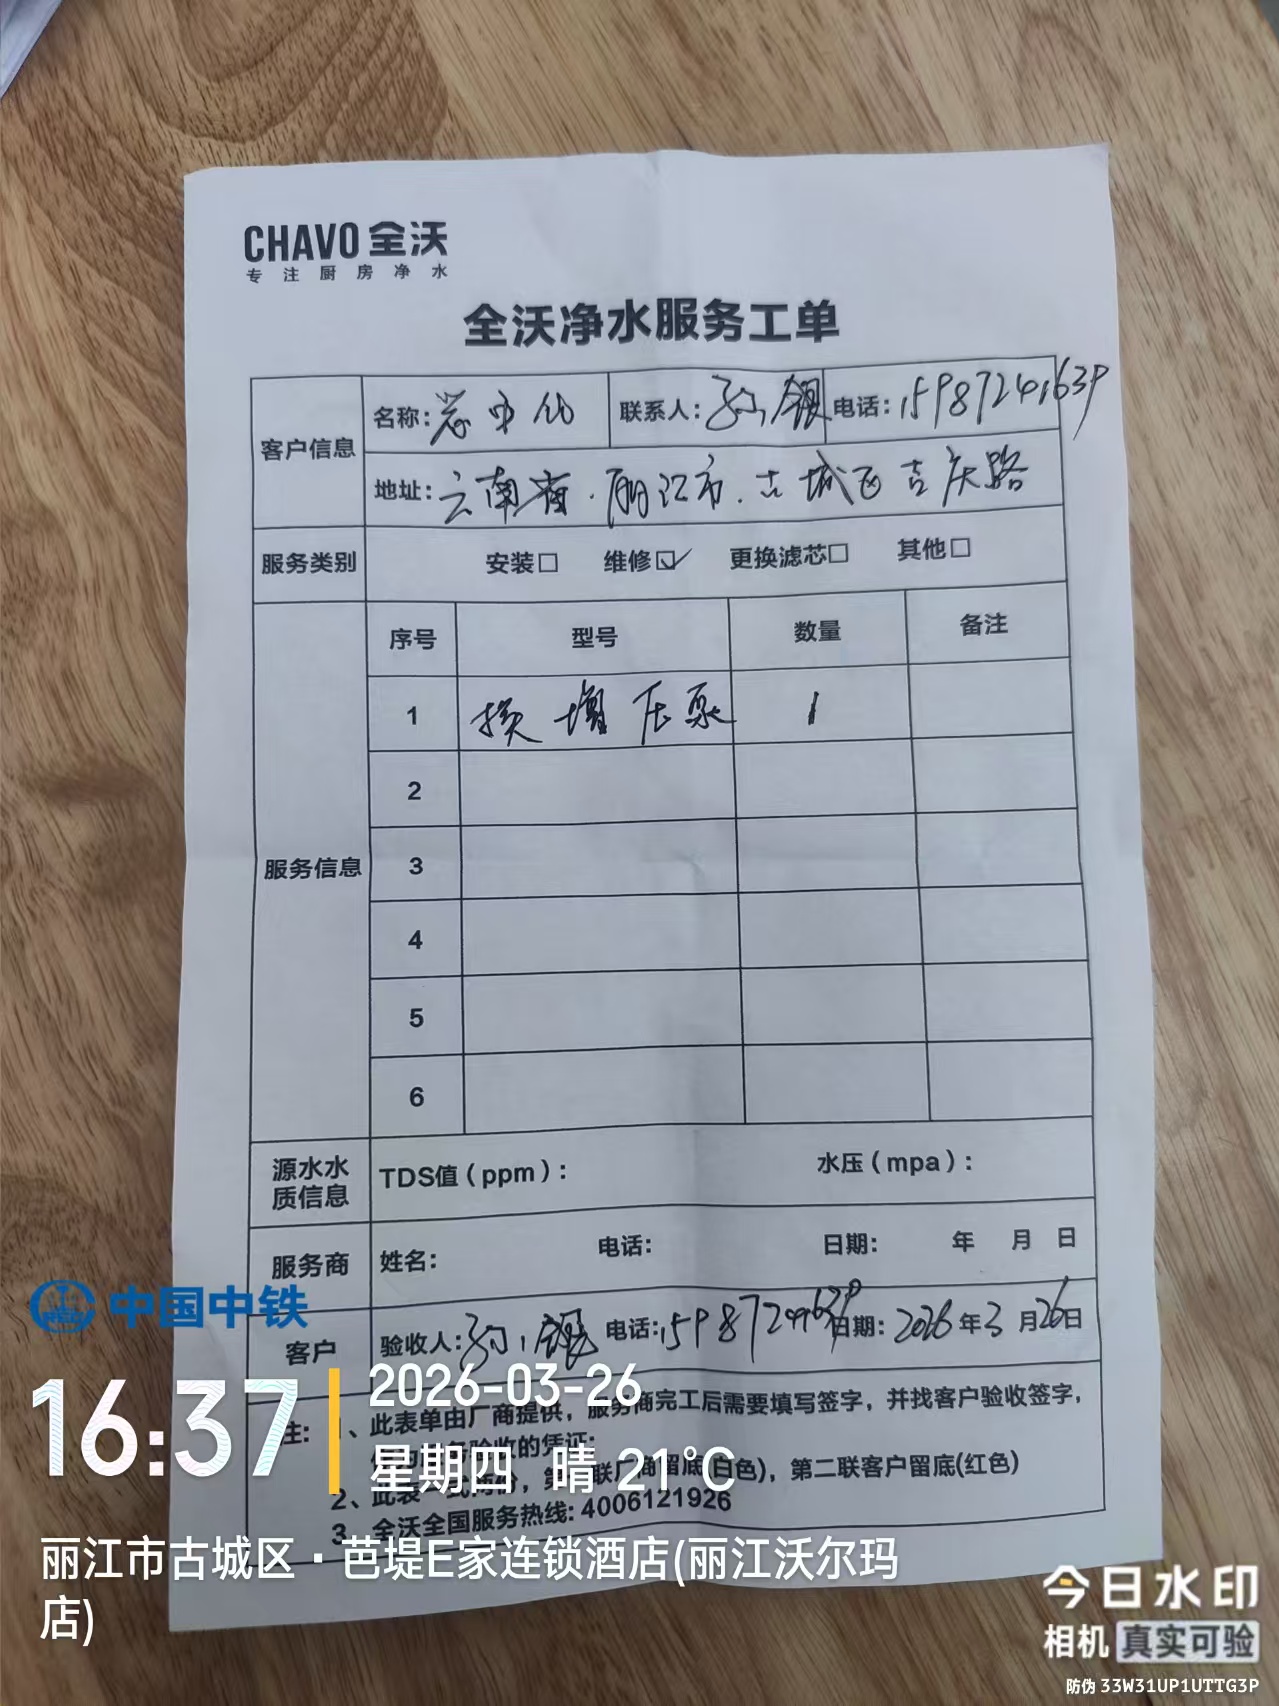 CHAVO 全沃
专注厨房净水
全沃净水服务工单
客户信息 名称: 联系人: 电话: 15987241639
地址: 云南省.丽江市.古城区吉庆路
服务类别 安装□ 维修☑ 更换滤芯□ 其他□
服务信息 序号 型号 数量 备注
1 换增压泵 1
2
3
4
5
6
源水水质信息 TDS值（ppm）: 水压（mpa）:
服务商 姓名: 电话: 日期: 年 月 日
客户 验收人: 电话: 15987241639 日期: 2026年3月26日
注: 1、此表单由厂商提供，服务商完工后需要填写签字，并找客户验收签字，
验收的凭证;
2、此表一式两份，第一联厂商留底(白色)，第二联客户留底(红色)
3、全沃全国服务热线: 4006121926
中国中铁
16:37
2026-03-26
星期四 晴 21℃
丽江市古城区·芭堤E家连锁酒店(丽江沃尔玛
店)
今日水印
相机 真实可验
防伪 33W31UP1UTTG3P